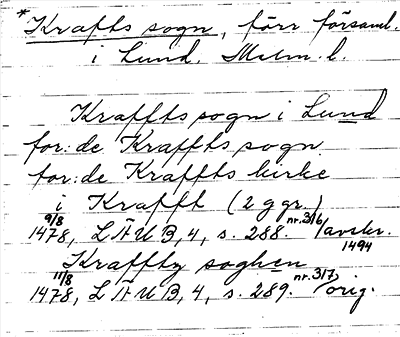 *Krafts sogn, förr församl.
i Lund. Malm. l.
Kraffts sogn i Lund
for: de Kraffts sogn
for: de Kraffts kirke
i Krafft (2 ggr.)
9/8 1478, LÄUB, 4, s. 288. nr. 316/avskr. 1494
Kraffty soghen
11/8 1478, LÄUB, 4, s. 289. nr. 317/orig.